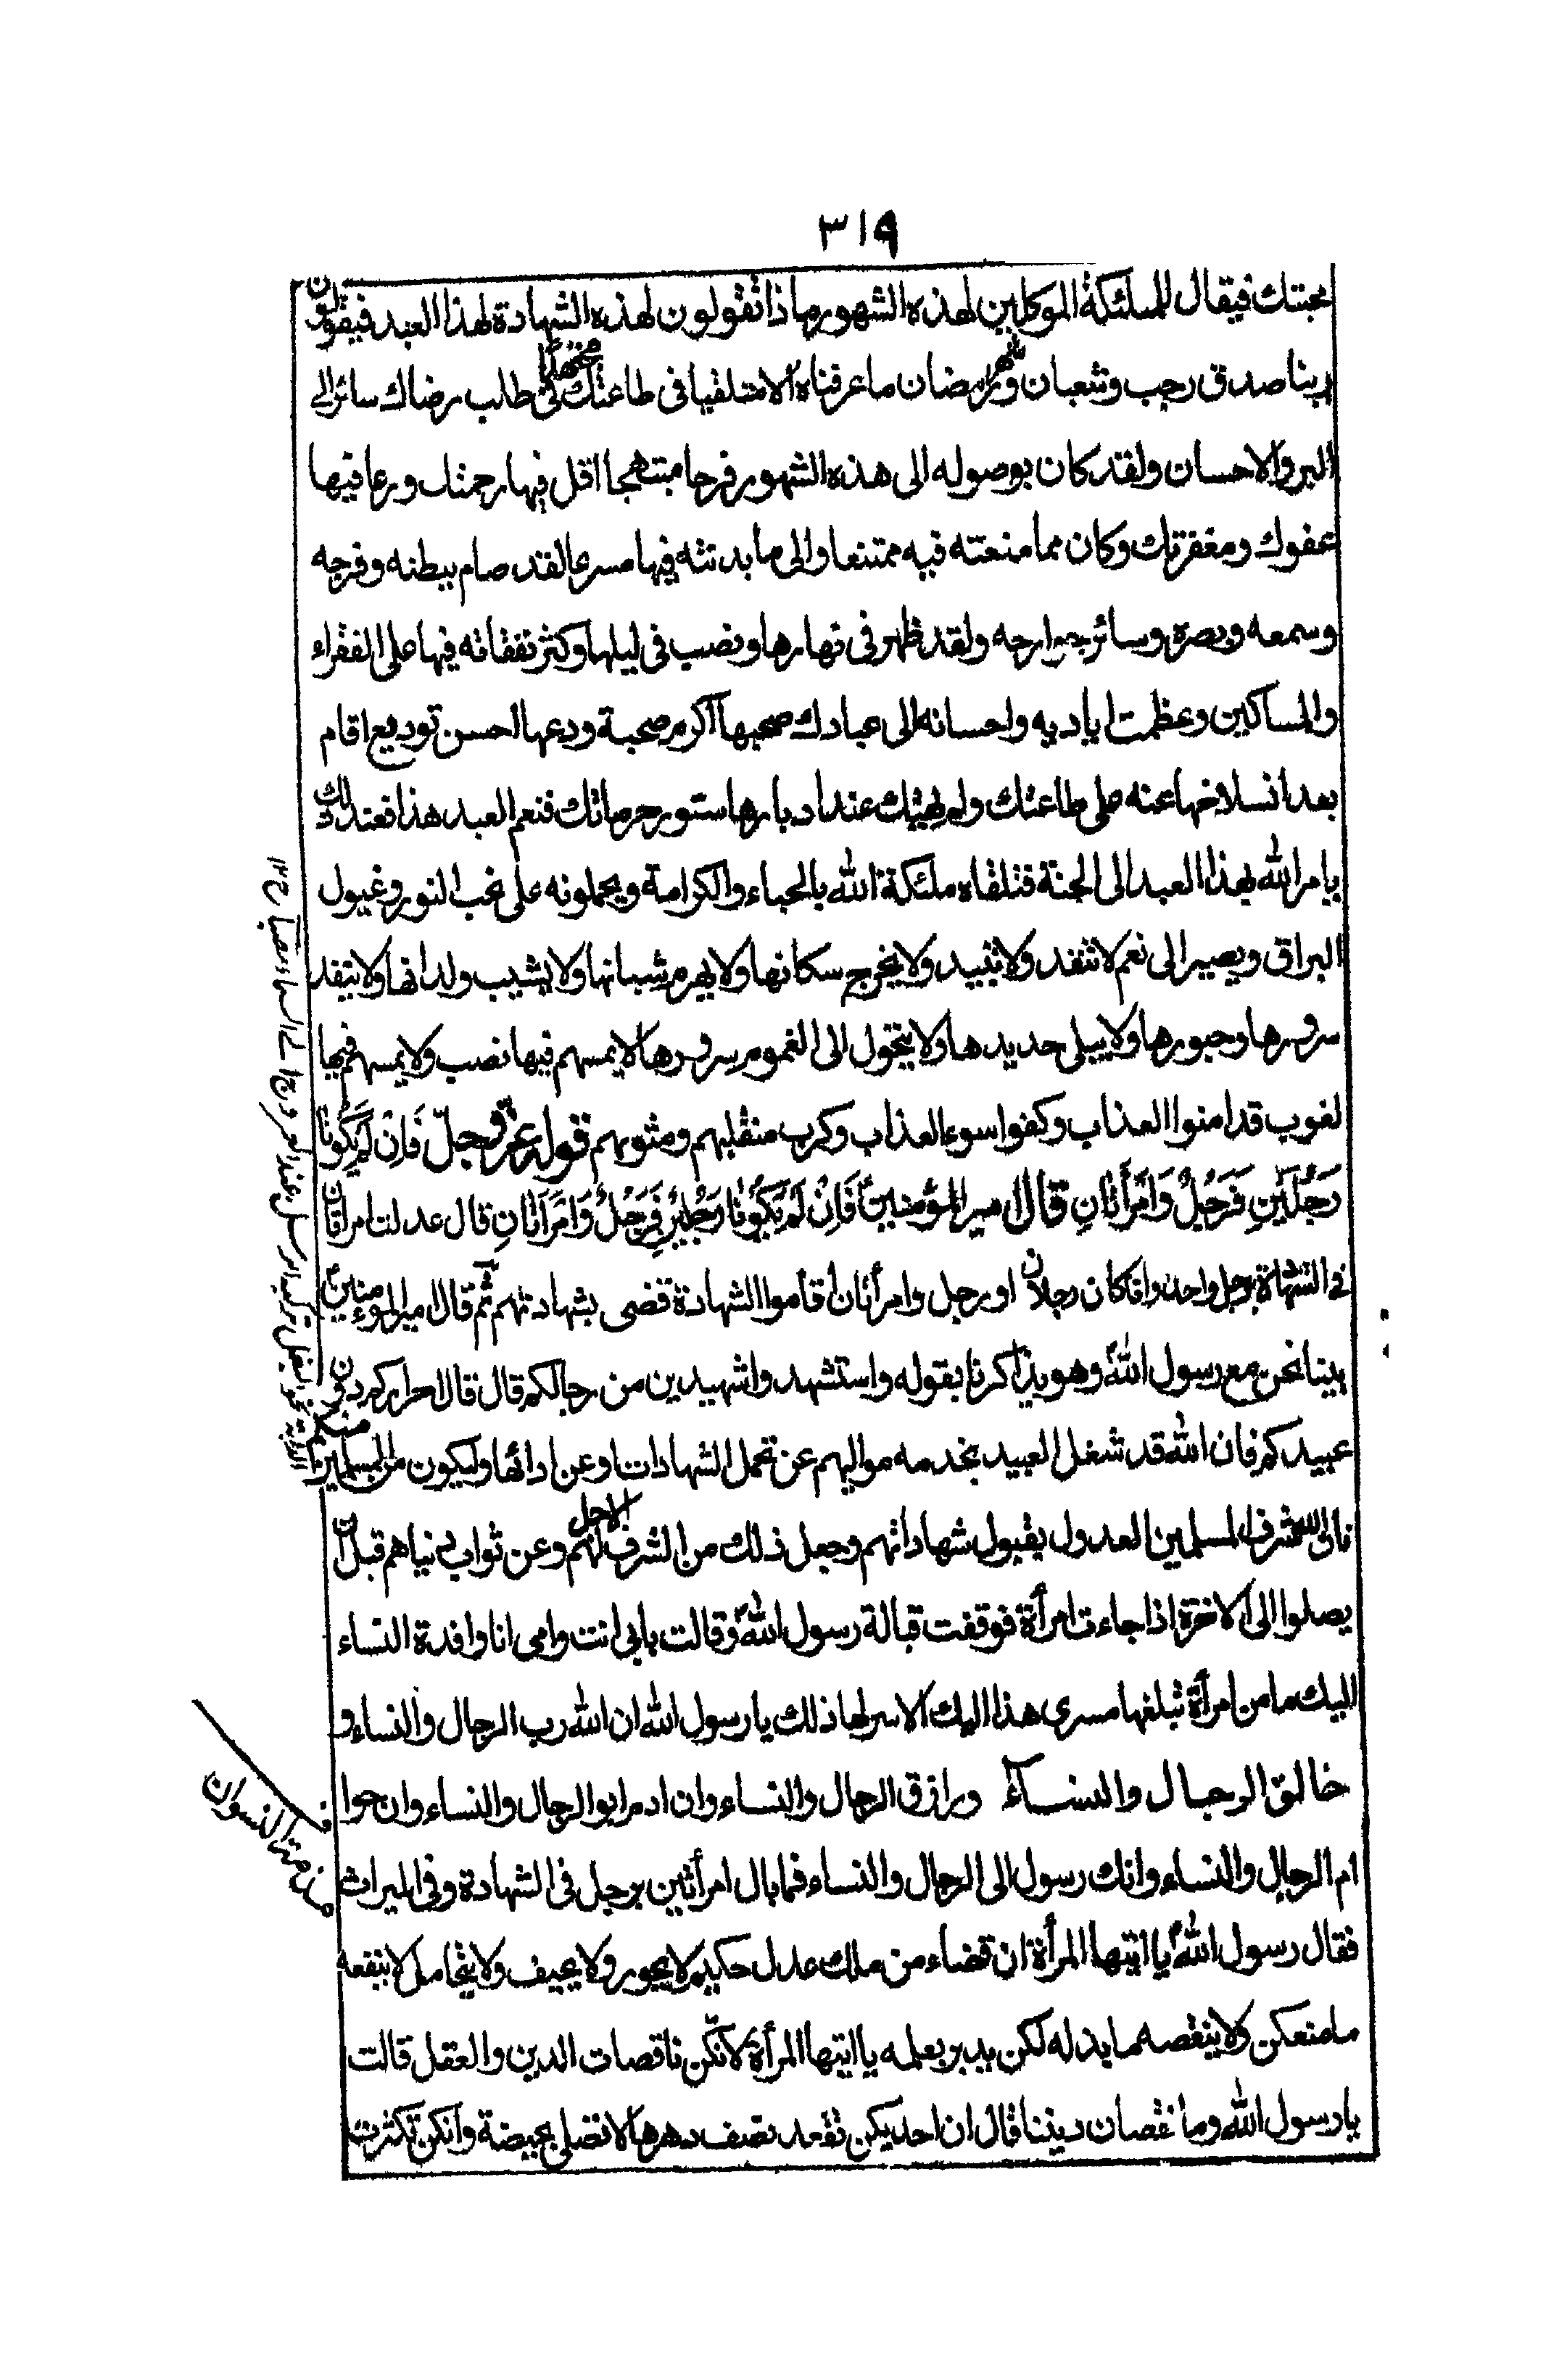 ٣١٩
محبتك فيقال للملئكة الموكلين لهذه الشهور ماذا تقولون لهذه الشهادة لهذا العبد فيقولون
ربنا صدق رجب وشعبان وشهر رمضان ما عرفناه الا متلقيا في طاعتك مجتهدا في طلب رضاك سائرا الى
البر والاحسان ولقد كان بوصوله الى هذه الشهور فرحا مبتهجا اقل فيها رحمتك ورعا فيها
عفوك ومغفرتك وكان مما منعته فيه ممتنعا والى ما بدنته فيها مسرعا لقد صام ببطنه وفرجه
وسمعه وبصره وسائر جوارحه ولقد ظهر في نهارها ونصب في ليلها وكثر نفقاته فيها على الفقراء
والمساكين وعظمت اياديه واحسانه الى عبادك صحبها اكرم صحبة ودعها احسن توديع اقام
بعد انسلاخها عنه على طاعتك ولم يهتك عند ادبارها ستور حرماتك فنعم العبد هذا فعند ذلك
يامر الله بهذا العبد الى الجنة فتلقاه ملئكة الله بالحباء والكرامة ويحملونه على نجب النور وخيول
البراق ويصير الى نعم لا تنفد ولا تبيد ولا يخرج سكانها ولا يهرم شبانها ولا يشيب ولدانها ولا ينفد
سرورها وحبورها ولا يبلى جديدها ولا يتحول الى الغموم سرورها لا يمسهم فيها نصب ولا يمسهم فيها
لغوب قد امنوا العذاب وكفوا سوء العذاب وكرب منقلبهم ومثويهم قوله عز وجل فَاِنْ لَمْ يَكُونَا
رَجُلَيْنِ فَرَجُلٌ وَامْرَأَتَانِ قال امير المؤمنين فَاِنْ لَمْ يَكُونَا رَجُلَيْنِ فَرَجُلٌ وَامْرَأَتَانِ قال عدلت امراتان
في الشهادة برجل واحد واذا كان رجلان او رجل وامرأتان أقاموا الشهادة قضى بشهادتهم ثم قال امير المؤمنين
بينا نحن مع رسول الله وهو يذاكرنا بقوله واستشهدوا شهيدين من رجالكم قال قال احراركم دون
عبيدكم فان الله قد شغل العبيد بخدمه مواليهم عن تحمل الشهادات وعن ادائها وليكون من المسلمين منكم
فان الله شرف المسلمين العدول بقبول شهاداتهم وجعل ذلك من الشرف الاجل لهم وعن ثواب دنياهم قبل ان
يصلوا الى الاخرة اذا جاءت امرأة فوقفت قبالة رسول الله وقالت بابي انت وامي انا وافدة النساء
اليك ما من امرأة تبلغها مسرى هذا اليك الا سرلها ذلك يا رسول الله ان الله رب الرجال والنساء و
خالق الرجال والنساء ورازق الرجال والنساء وان ادم ابو الرجال والنساء وان حوا
ام الرجال والنساء وانك رسول الى الرجال والنساء فما بال امرأتين برجل في الشهادة وفي الميراث
فقال رسول الله يا ايتها المرأة ان قضاء من ملك عدل حكيم لا يجور ولا يحيف ولا يتحامل لا ينفعه
ما منعكن ولا ينقصه ما يذله لكن يدبر بعلمه يا ايتها المرأة لانكن ناقصات الدين والعقل قالت
يا رسول الله وما نقصان ديننا قال ان احديكن تقعد نصف دهرها لا تصلى بحيضة وانكن تكثرن